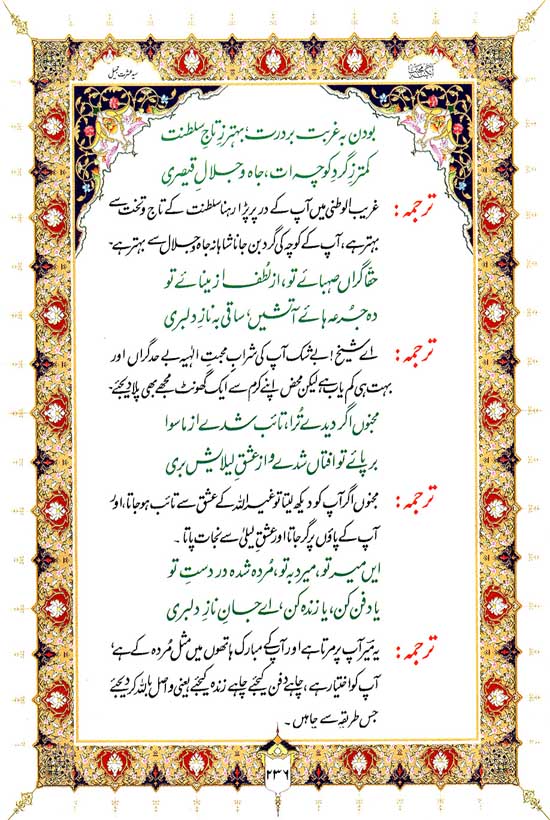 آئینۂ محبت
سید عشرت جمیل
بودن بہ غربت بر درت، بہتر ز تاجِ سلطنت
کمتر ز گردِ کوچہ ات، جاہ و جلالِ قیصری
ترجمہ: غریب الوطنی میں آپ کے در پر پڑا رہنا سلطنت کے تاج و تخت سے
بہتر ہے، آپ کے کوچہ کی گرد بن جانا شاہانہ جاہ و جلال سے بہتر ہے۔
حقا گراں صہبائے تو، از لُطف از مینائے تو
دہ جُرعہ ہائے آتشیں، ساقی بہ نازِ دلبری
ترجمہ: اے شیخ! بے شک آپ کی شرابِ محبتِ الٰہیہ بے حد گراں اور
بہت ہی کم یاب ہے لیکن محض اپنے کرم سے ایک گھونٹ مجھے بھی پلا دیجئے۔
مجنوں اگر دیدے تُرا، تائب شدے از ماسوا
بر پائے تو افتاں شدے و از عشقِ لیلایش بری
ترجمہ: مجنوں اگر آپ کو دیکھ لیتا تو غیر اللہ کے عشق سے تائب ہو جاتا، اور
آپ کے پاؤں پر گر جاتا اور عشقِ لیلیٰ سے نجات پاتا۔
ایں میرِ تو، میرد بہ تو، مُردہ شدہ در دستِ تو
یا دفن کن، یا زندہ کن، اے جانِ نازِ دلبری
ترجمہ: یہ میرؔ آپ پر مرتا ہے اور آپ کے مبارک ہاتھوں میں مثل مُردہ کے ہے،
آپ کو اختیار ہے، چاہے دفن کیجئے چاہے زندہ کیجئے یعنی واصل باللہ کر دیجئے
جس طریقہ سے چاہیں۔
۲۳۶